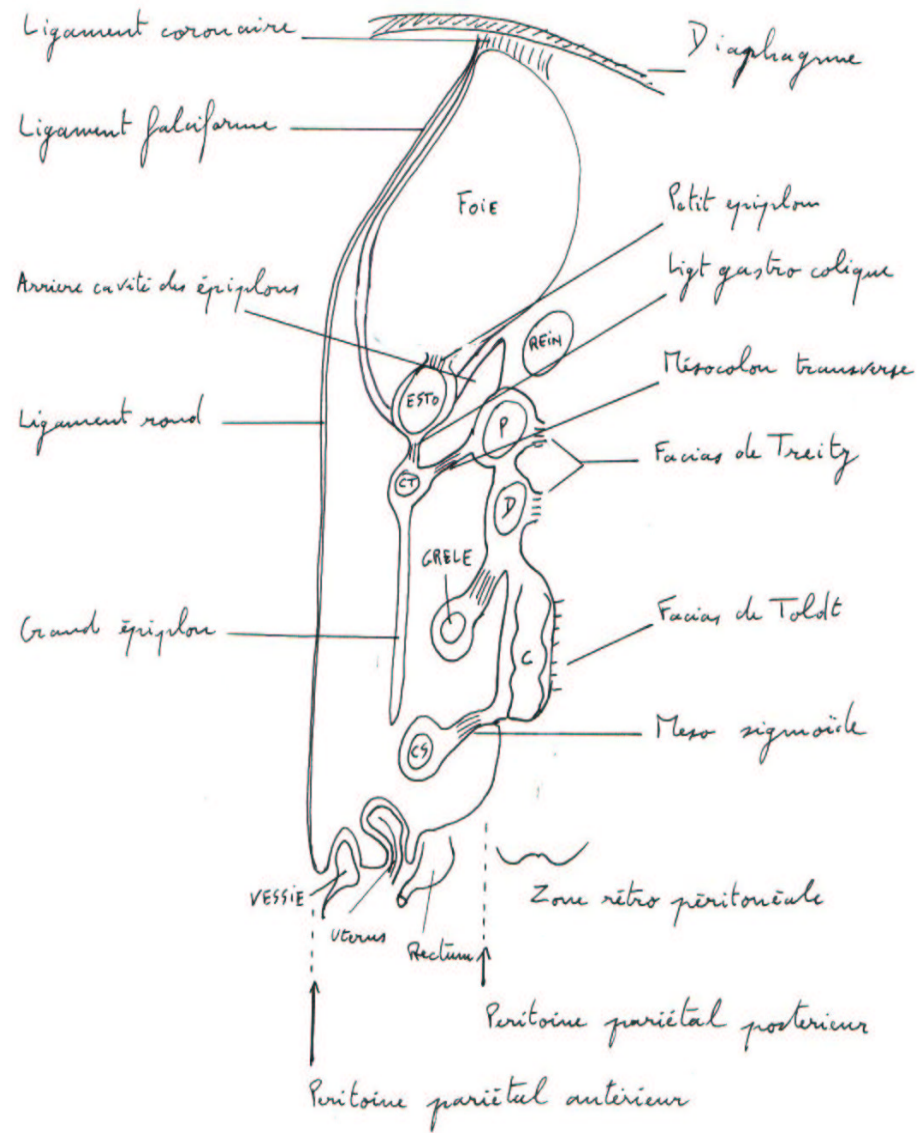 Ligament coronaire
Diaphagme
Ligament falciforme
FOIE
Petit epiplon
Ligt gastro colique
Arriere cavité des épiplons
REIN
Mésocolon transverse
ESTO
Ligament rond
P
Facias de Treitz
CT
D
GRELE
Grand épiplon
Facias de Toldt
C
Meso sigmoïde
CS
VESSIE
Uterus
Rectum
Zone rétro péritonéale
Peritoine pariétal posterieur
Peritoine pariétal antérieur